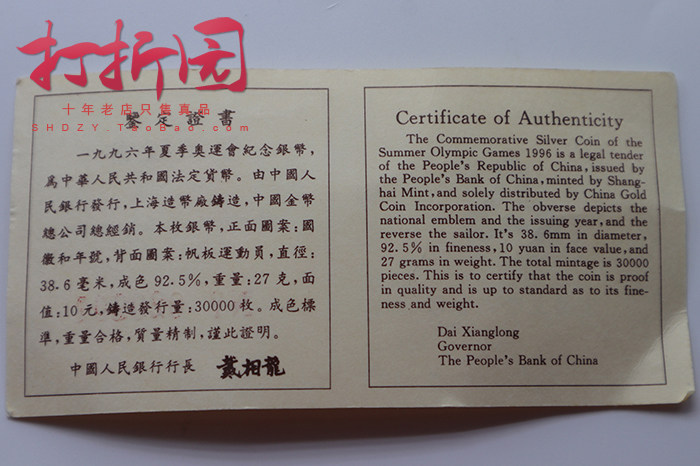 打折园
十年老店只售真品
SHDZY.TaoBao.com
鑒定證書
一九九六年夏季奥運會紀念銀幣，
爲中華人民共和國法定貨幣。由中國人
民銀行發行，上海造幣廠鑄造，中國金幣
總公司總經銷。本枚銀幣，正面圖案：國
徽和年號，背面圖案：帆板運動員，直徑：
38.6毫米，成色92.5%，重量：27克，面
值：10元，鑄造發行量：30000枚。成色標
準，重量合格，質量精制，謹此證明。
中國人民銀行行長 戴相龍
Certificate of Authenticity
The Commemorative Silver Coin of the
Summer Olympic Games 1996 is a legal tender
of the People's Republic of China, issued by
the People's Bank of China, minted by Shang-
hai Mint, and solely distributed by China Gold
Coin Incorporation. The obverse depicts the
national emblem and the issuing year, and the
reverse the sailor. It's 38.6mm in diameter,
92.5% in fineness, 10 yuan in face value, and
27 grams in weight. The total mintage is 30000
pieces. This is to certify that the coin is proof
in quality and is up to standard as to its fine-
ness and weight.
Dai Xianglong
Governor
The People's Bank of China